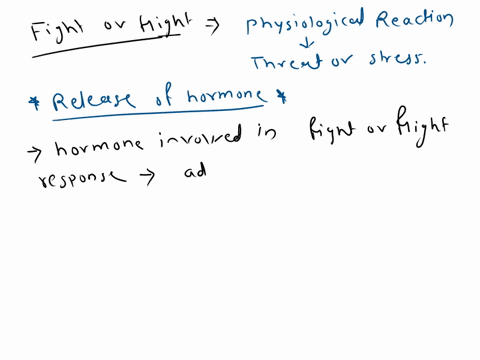 Fight or flight ⇒ Physiological Reaction
↓
Threat or stress.
* Release of hormone *
→ hormone involved in fight or flight
response → ad